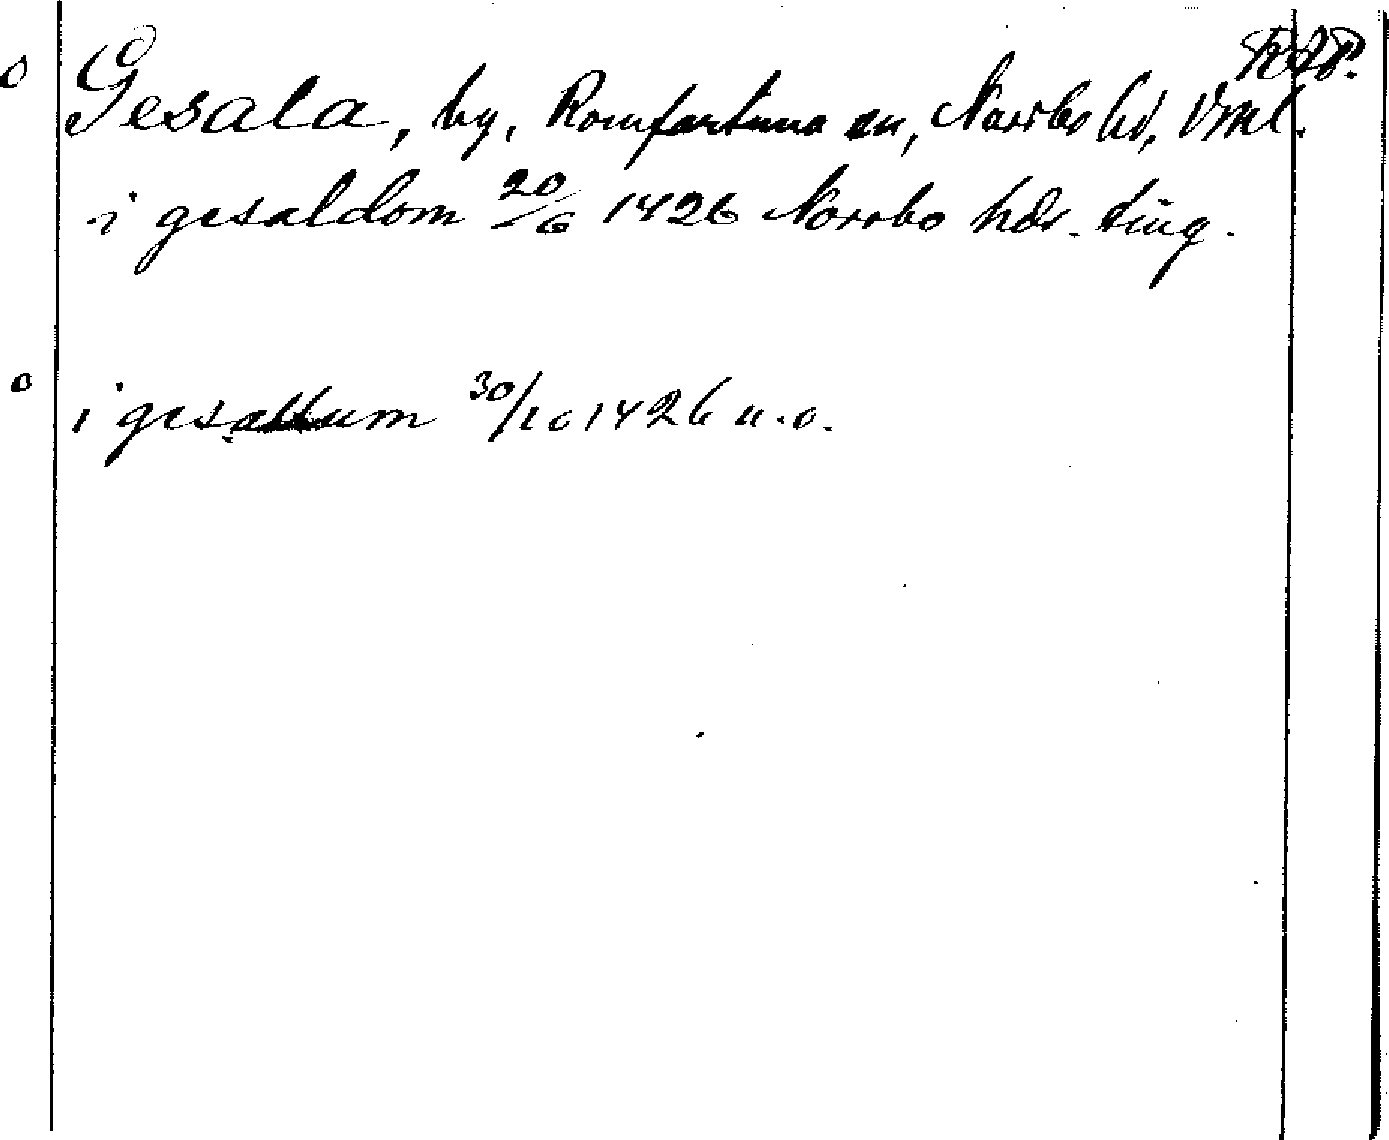 Gesala, by, Romfartuna sn, Norrbo hd, Vml.
i gesaldom 20/6 1426 Norrbo hds. ting.
i gesallum 30/10 1426 u.o.